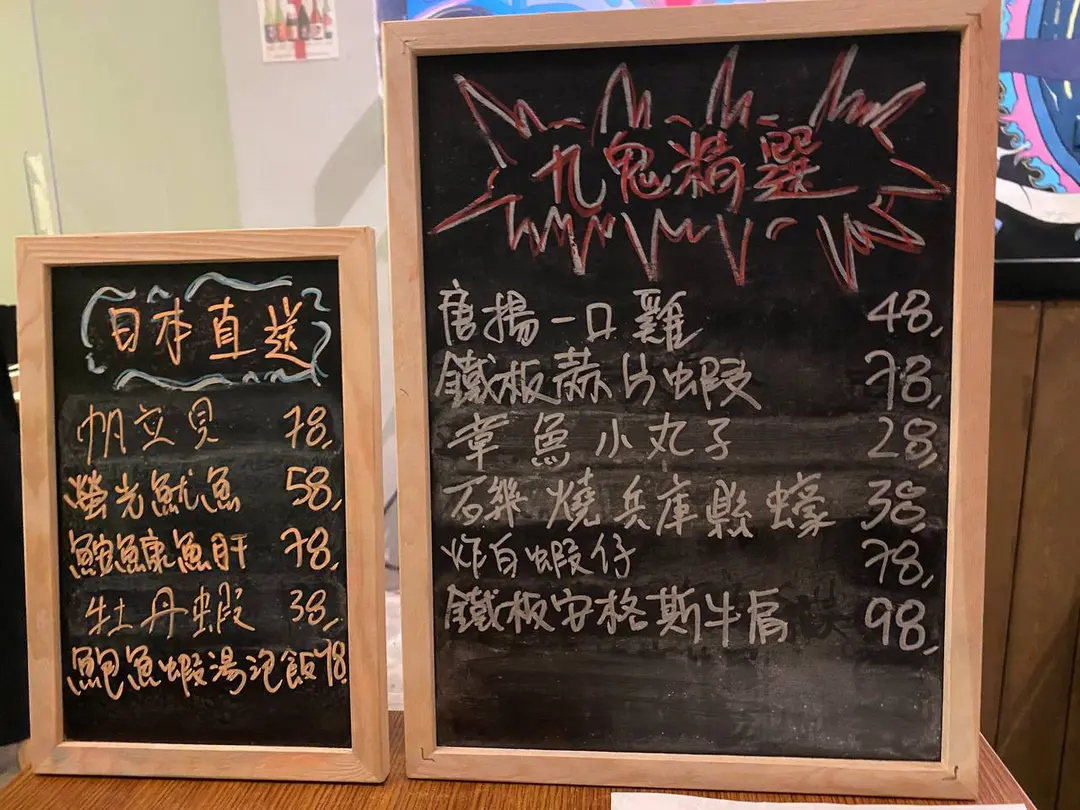 日本直送
帆立貝 78,
螢光魷魚 58,
鮟鱇魚肝 78,
牡丹蝦 38,
鮑魚蝦湯泡飯 78,
九鬼精選
唐揚一口雞 48,
鐵板蒜片蝦 78,
章魚小丸子 28,
石燒兵庫縣蠔 38,
炸白蝦仔 78,
鐵板安格斯牛肩 98,